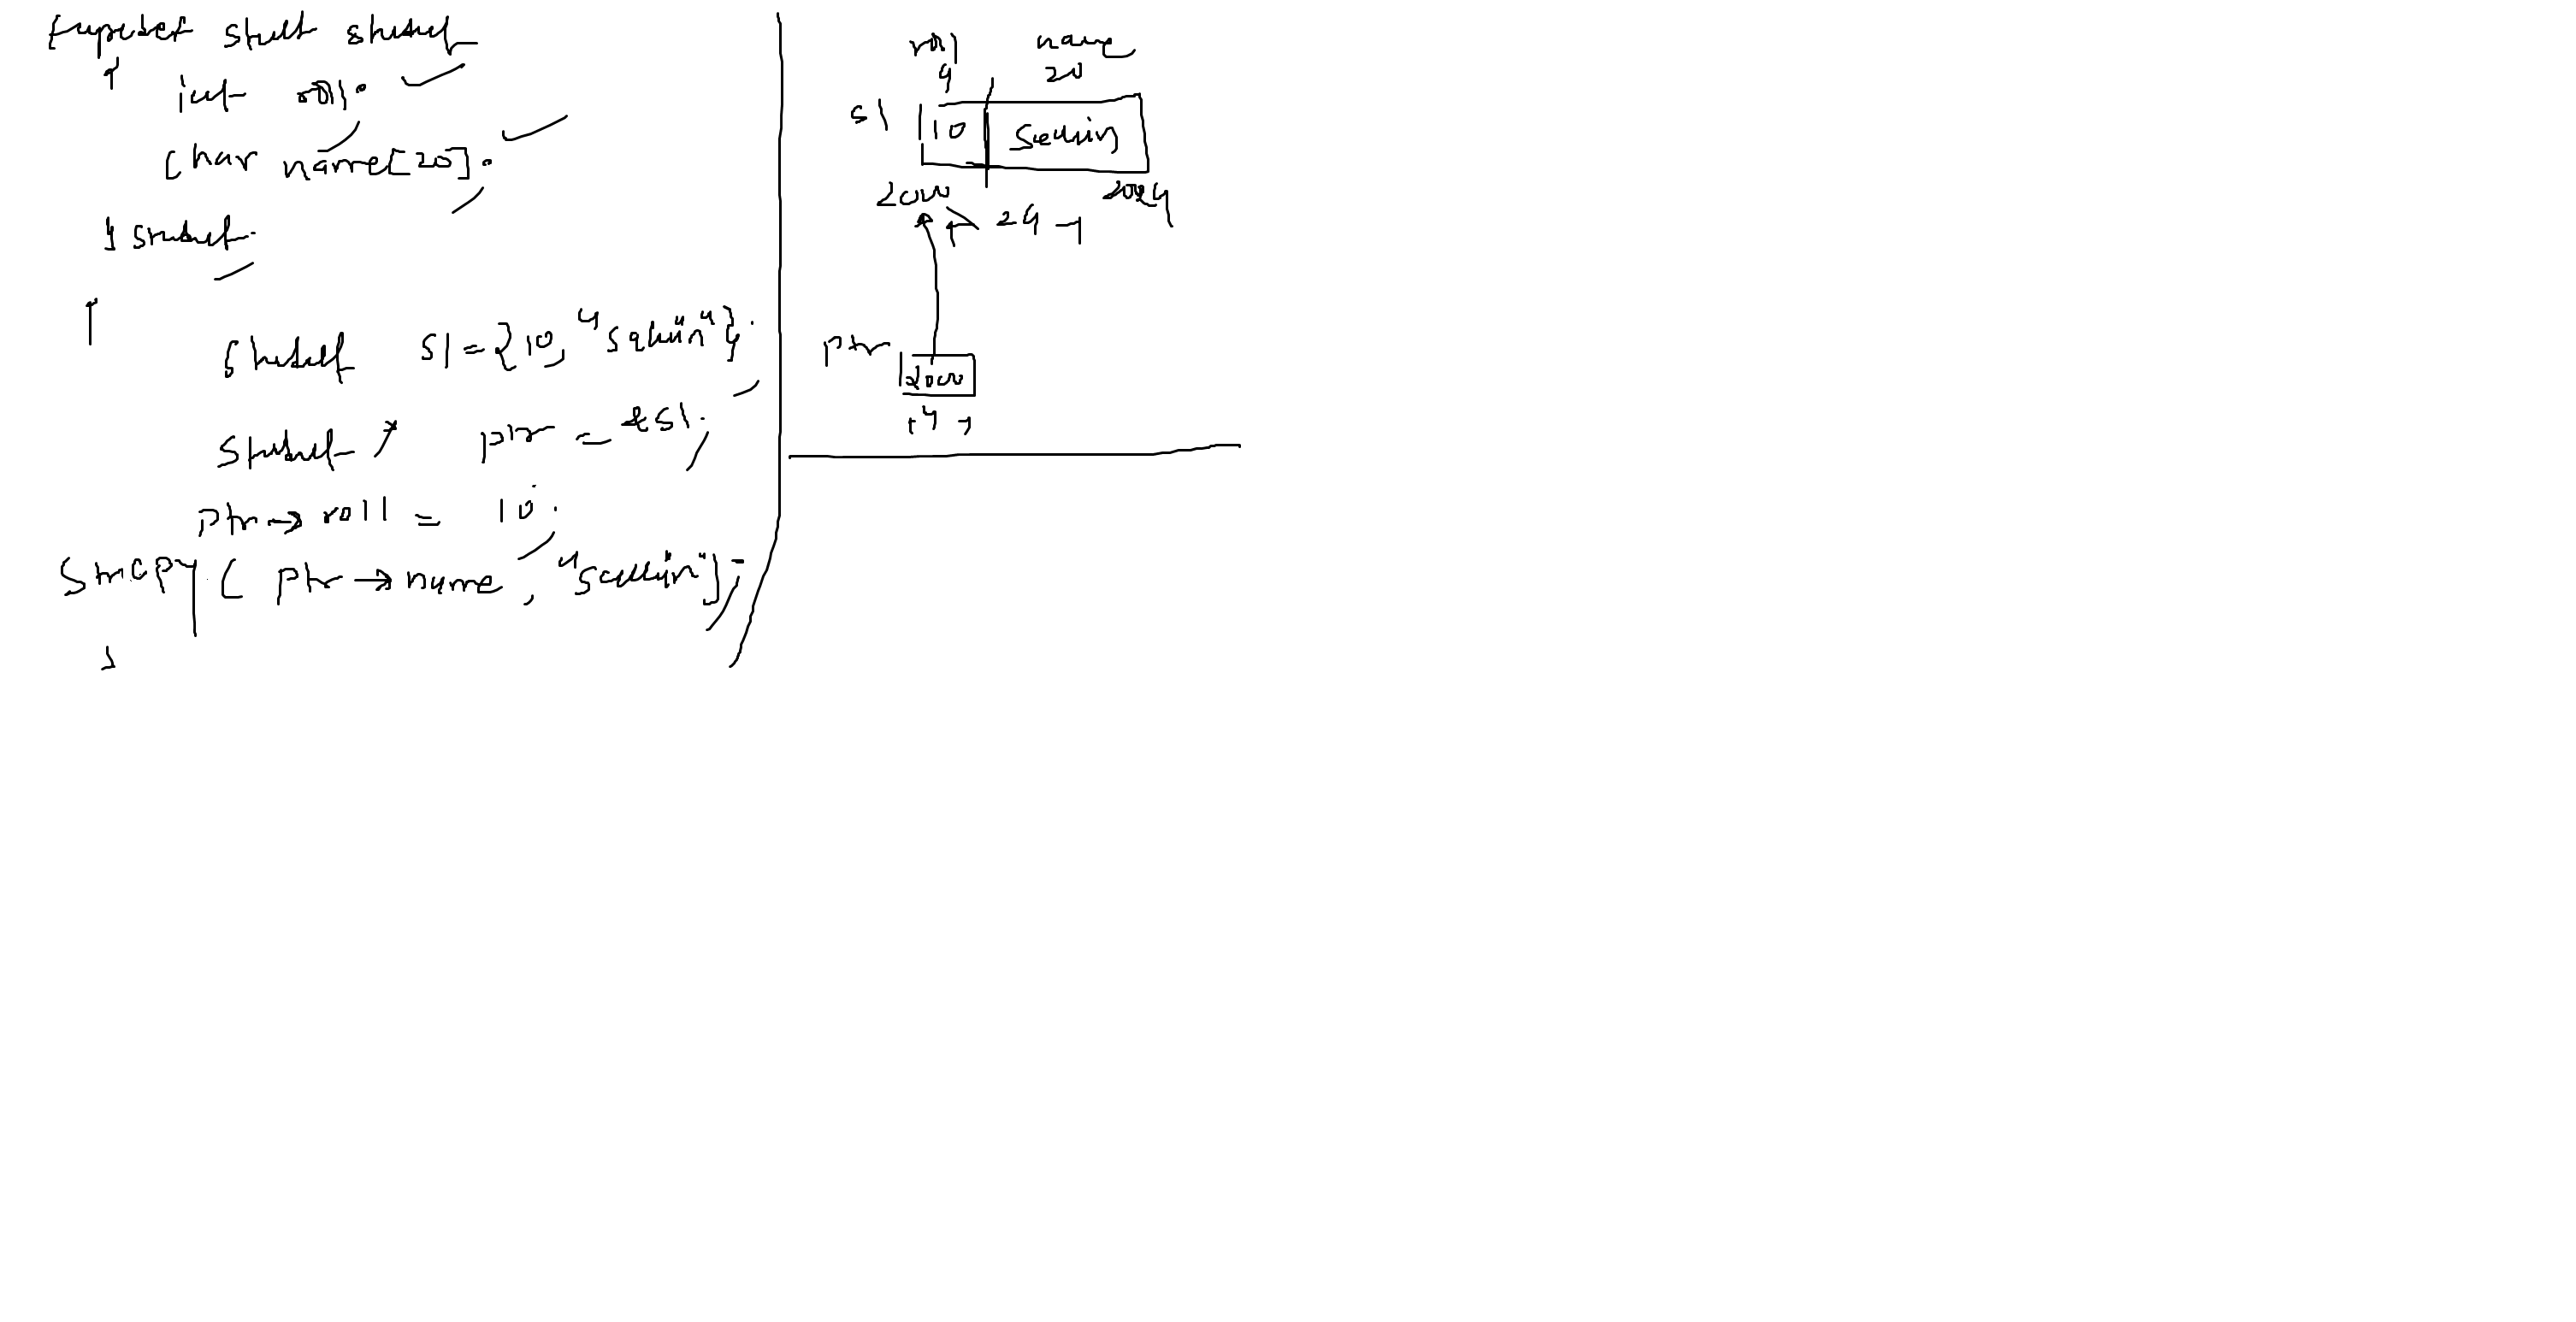 typedef struct student
{
int roll;
char name[20];
} student;
{
student s1 = {10, "sachin"};
student * ptr = &s1;
ptr → roll = 10;
strcpy ( ptr → name, "sachin");
}
roll name
4 20
s1 10 Sachin
2000 2024
24
ptr 2000
4